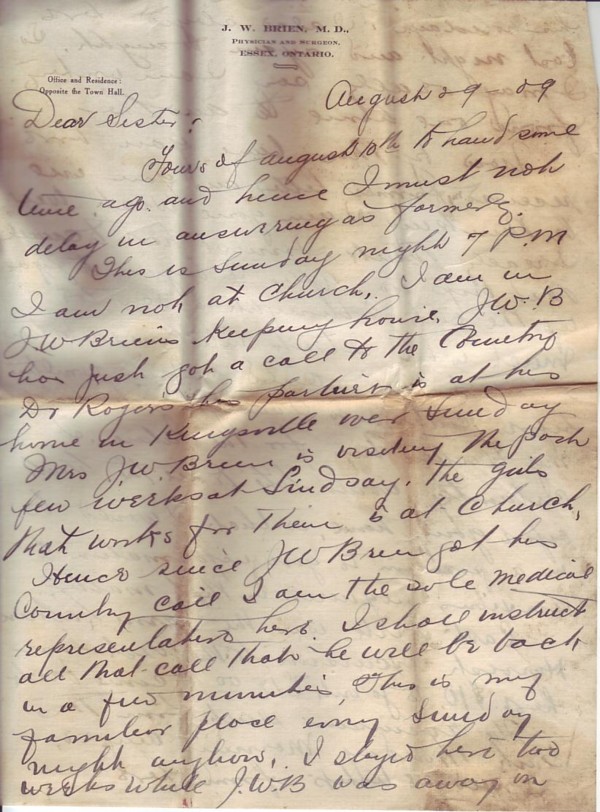 J. W. BRIEN, M. D.,
PHYSICIAN AND SURGEON.
ESSEX, ONTARIO.
Office and Residence:
Opposite the Town Hall.
August 29-09
Dear Sister:
Yours of August 10th to hand some
time ago and hence I must not
delay in answering as formerly.
This is Sunday night 7 P.M
I am not at Church. I am in
JW Briens keeping house. J.W.B
has just got a call to the Country
Dr Rogers his partner is at his
home in Kingsville over Sunday
Mrs JW Brien is visiting the past
few weeks at Lindsay. The girls
that works for them is at Church,
Hence since JW Brien got his
Country call I am the sole medical
representative here. I shall instruct
all that call that he will be back
in a few minutes, This is my
familiar place every Sunday
night anyhow. I stayed here two
weeks while J.W.B was away on